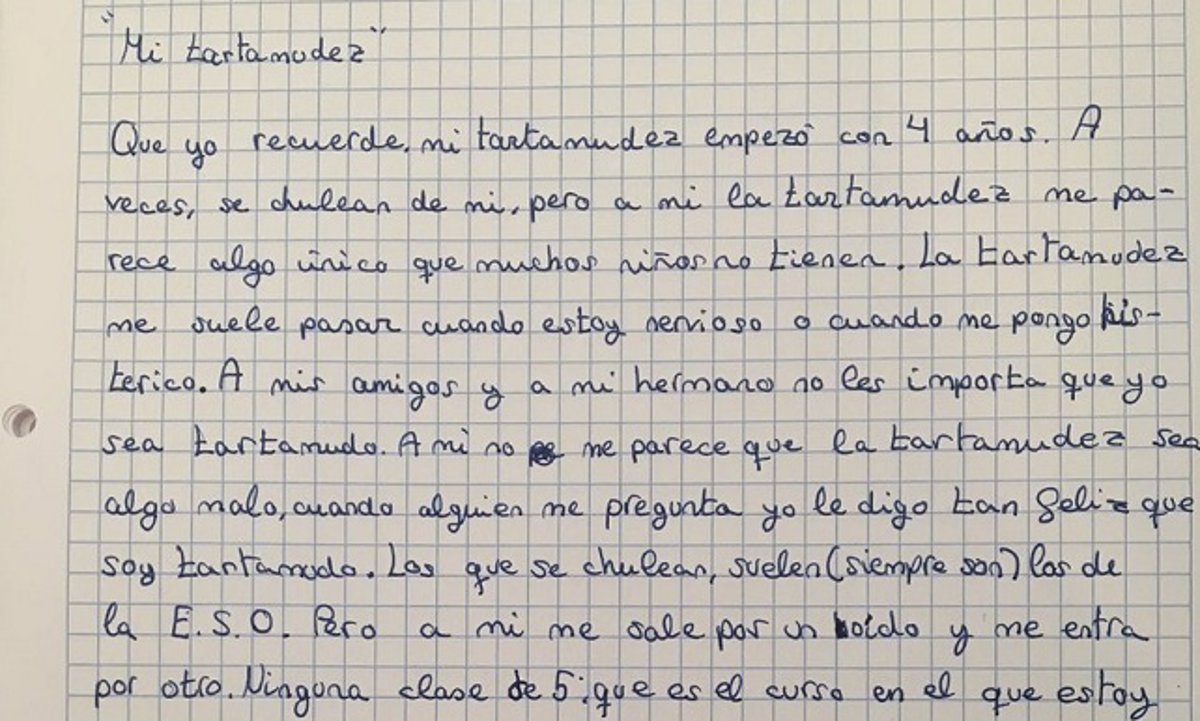 "Mi tartamudez"
Que yo recuerde, mi tartamudez empezó con 4 años. A
veces, se chulean de mi, pero a mi la tartamudez me pa-
rece algo único que muchos niños no tienen. La tartamudez
me suele pasar cuando estoy nervioso o cuando me pongo his-
terico. A mis amigos y a mi hermano no les importa que yo
sea tartamudo. A mi no me parece que la tartamudez sea
algo malo, cuando alguien me pregunta yo le digo tan feliz que
soy tartamudo. Los que se chulean, suelen (siempre son) los de
la E.S.O. Pero a mi me sale por un oido y me entra
por otro. Ninguna clase de 5; que es el curso en el que estoy